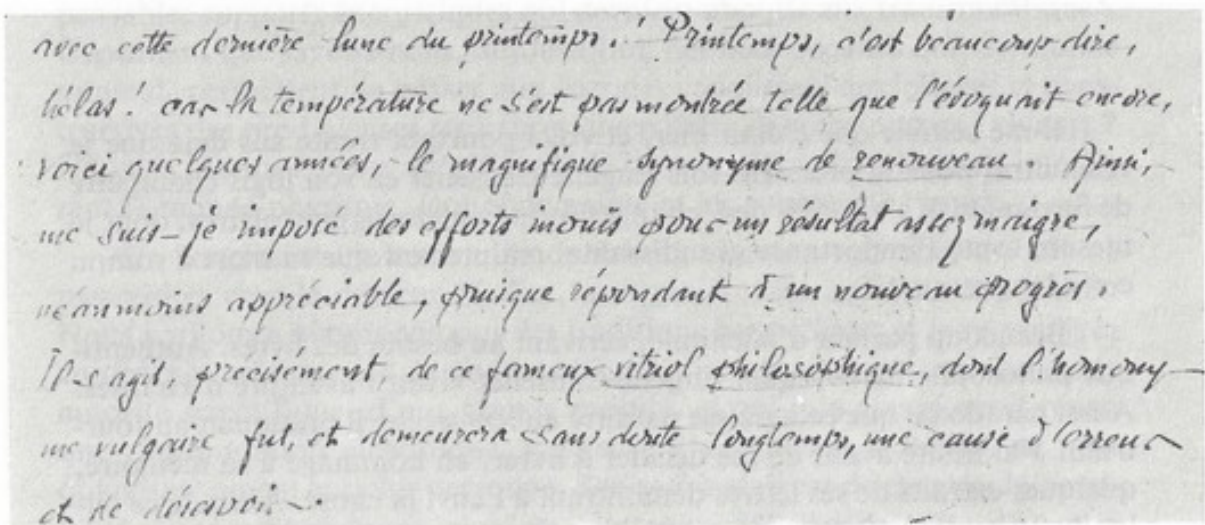 avec cette dernière lune du printemps. Printemps, c'est beaucoup dire,
hélas ! car la température ne s'est pas montrée telle que l'évoquait encore,
voici quelques années, le magnifique synonyme de renouveau. Ainsi,
me suis-je imposé des efforts inouïs pour un résultat assez maigre,
néanmoins appréciable, puisque répondant à un nouveau progrès.
Il s'agit, précisément, de ce fameux vitriol philosophique, dont l'homony-
me vulgaire fut, et demeurera sans doute longtemps, une cause d'erreur
et de